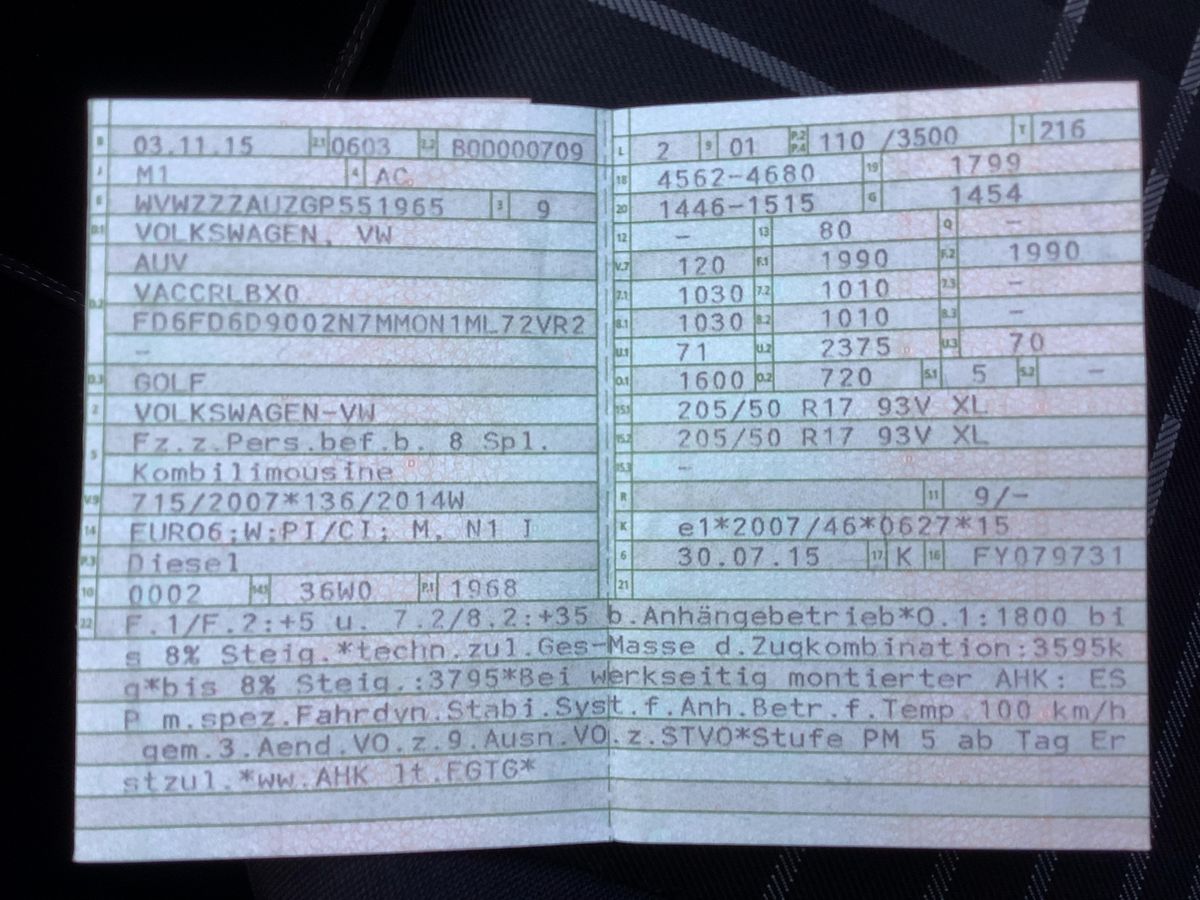 B 03.11.15 2.1 0603 2.2 BOD000709
J M1 4 AC
E WVWZZZAUZGP551965 3 9
D.1 VOLKSWAGEN, VW
AUV
D.2 VACCRLBX0
FD6FD6D9002N7MMON1ML72VR2
–
D.3 GOLF
2 VOLKSWAGEN-VW
5 Fz.z.Pers.bef.b. 8 Spl.
Kombilimousine
V.9 715/2007*136/2014W
14 EURO6;W;PI/CI; M, N1 I
P.3 Diesel
10 0002 14.1 36W0 P.1 1968
L 2 9 01 P.2 P.4 110 /3500 T 216
18 4562-4680 19 1799
20 1446-1515 G 1454
12 – 13 80 Q –
V.7 120 F.1 1990 F.2 1990
7.1 1030 7.2 1010 7.3 –
8.1 1030 8.2 1010 8.3 –
U.1 71 U.2 2375 U.3 70
O.1 1600 O.2 720 S.1 5 S.2 –
15.1 205/50 R17 93V XL
15.2 205/50 R17 93V XL
15.3 –
R 11 9/-
K e1*2007/46*0627*15
6 30.07.15 17 K 16 FY079731
21
22 F.1/F.2:+5 u. 7.2/8.2:+35 b.Anhängebetrieb*O.1:1800 bi
s 8% Steig.*techn.zul.Ges-Masse d.Zugkombination:3595k
g*bis 8% Steig.:3795*Bei werkseitig montierter AHK: ES
P m.spez.Fahrdyn.Stabi.Syst.f.Anh.Betr.f.Temp.100 km/h
gem.3.Aend.VO.z.9.Ausn.VO.z.STVO*Stufe PM 5 ab Tag Er
stzul.*ww.AHK lt.FGTG*